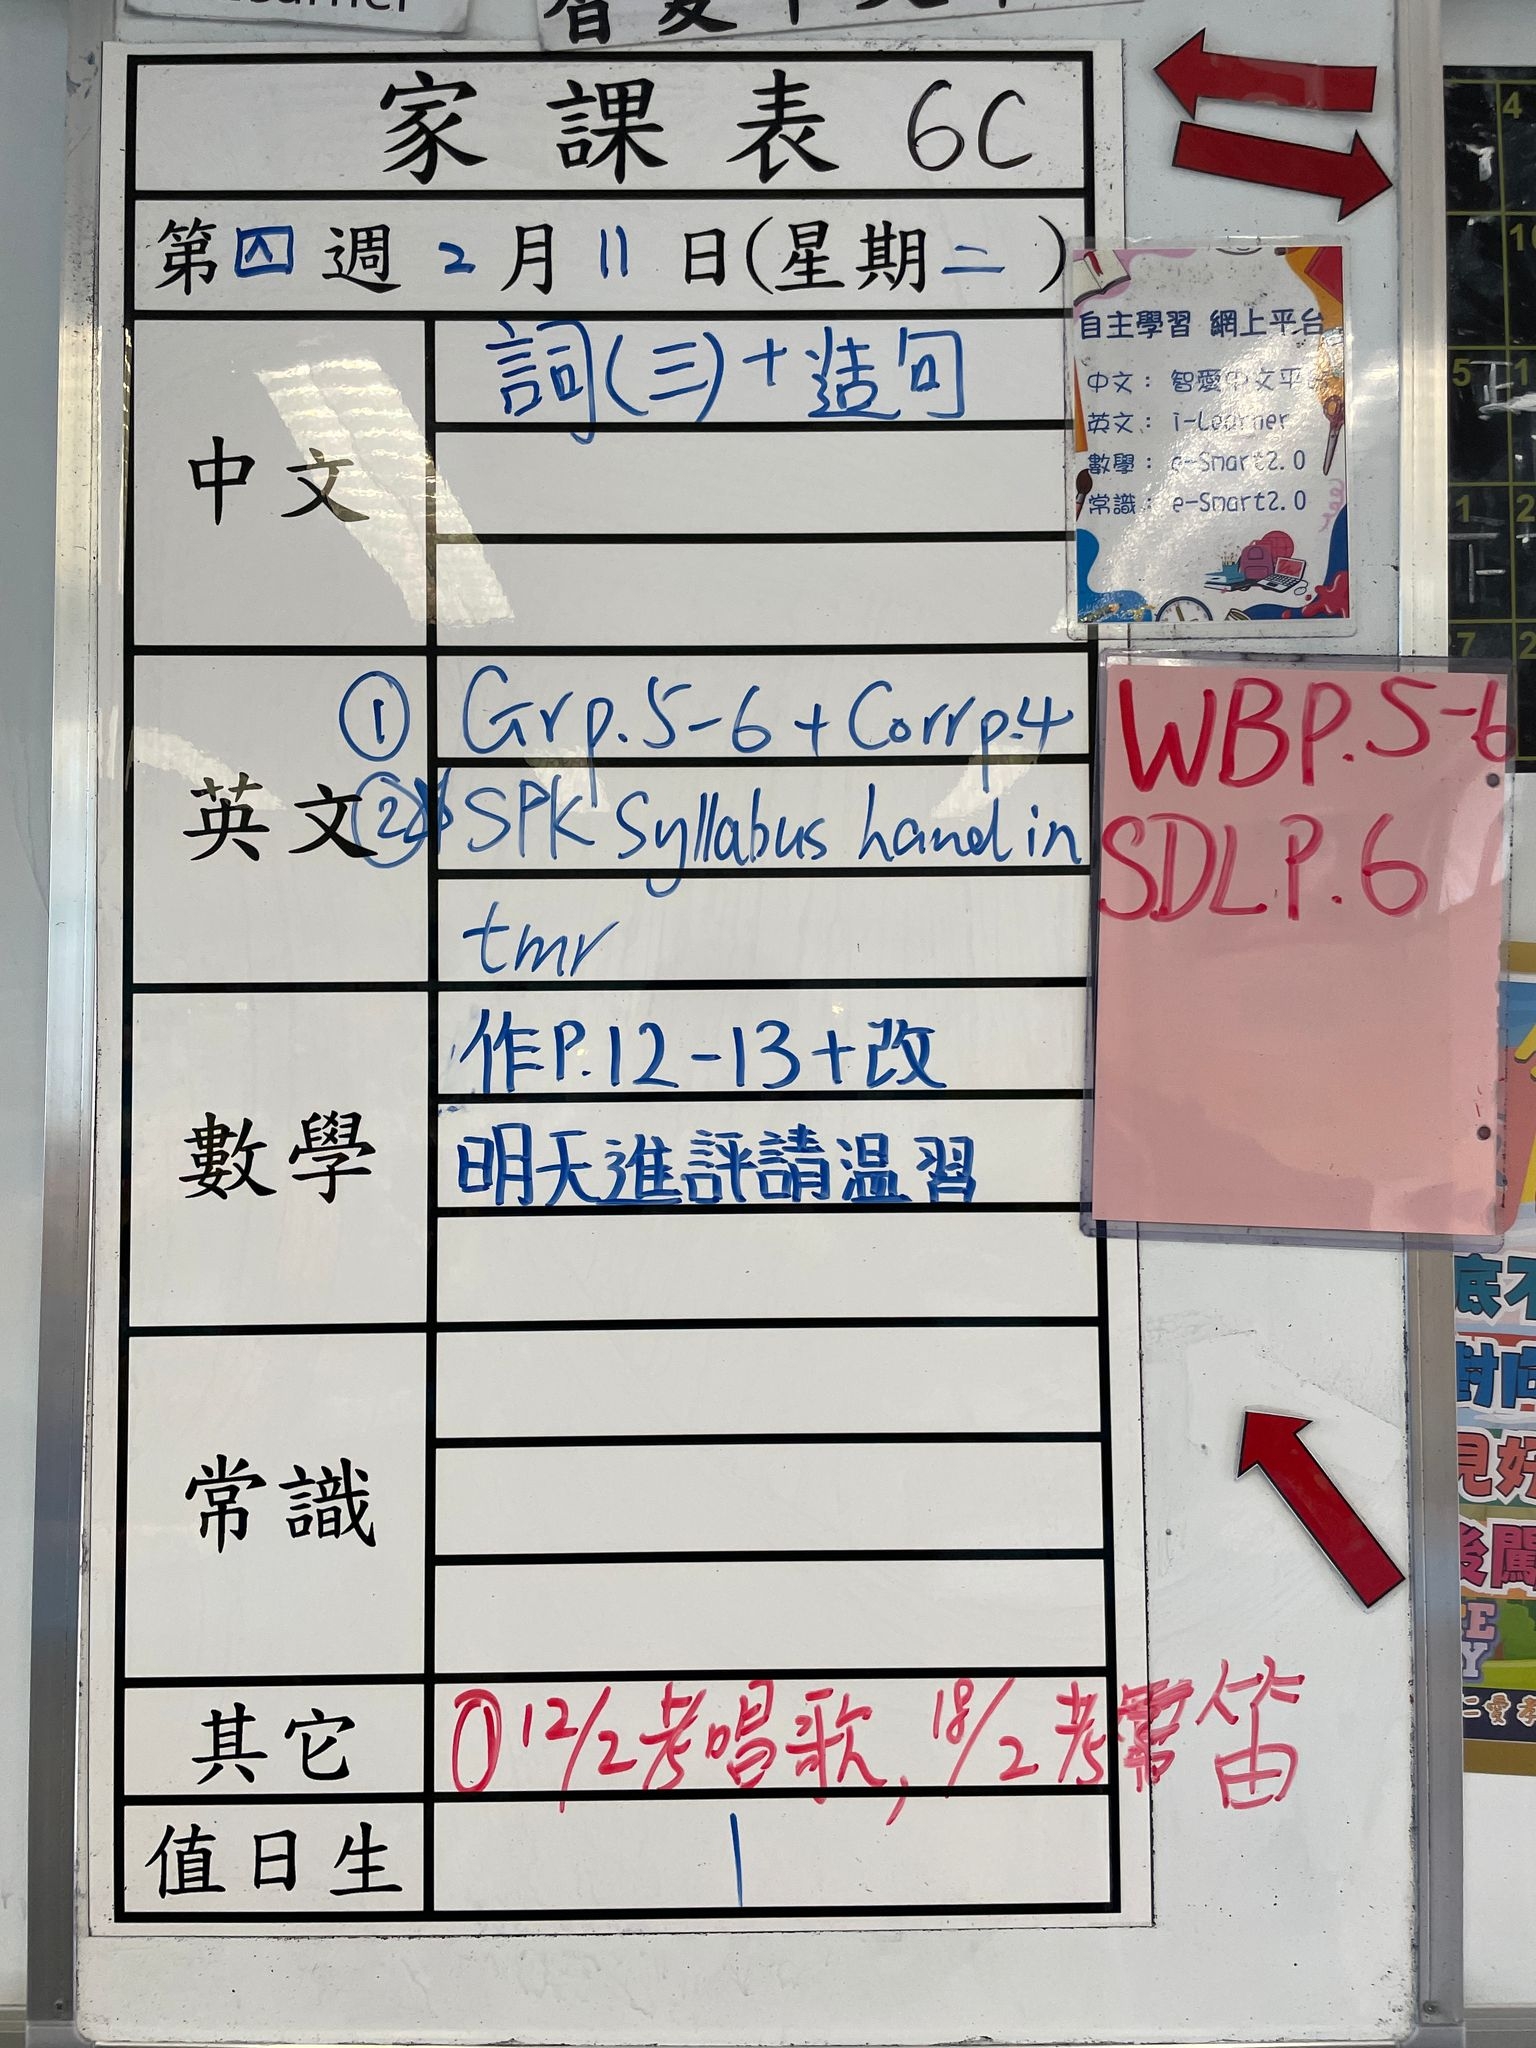 家課表 6C
第四週 2月11日(星期二)
中文
詞(三)+造句
英文
① Grp.5-6 + Corrp.4
② SPK Syllabus hand in
tmr
數學
作P.12-13+改
明天進評請温習
常識
其它
①12/2考唱歌, 18/2考 笛
值日生
1
自主學習 網上平台
中文: 智愛中文平
英文: i-Learner
數學: e-Smart2.0
常識: e-Smart2.0
WBP.5-6
SDLP.6